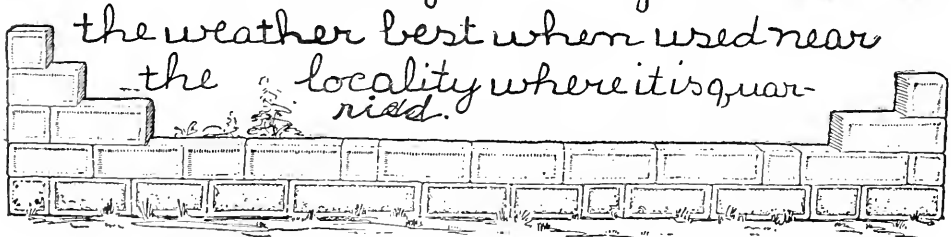 the weather best when used near
the locality where it is quar-
ried.